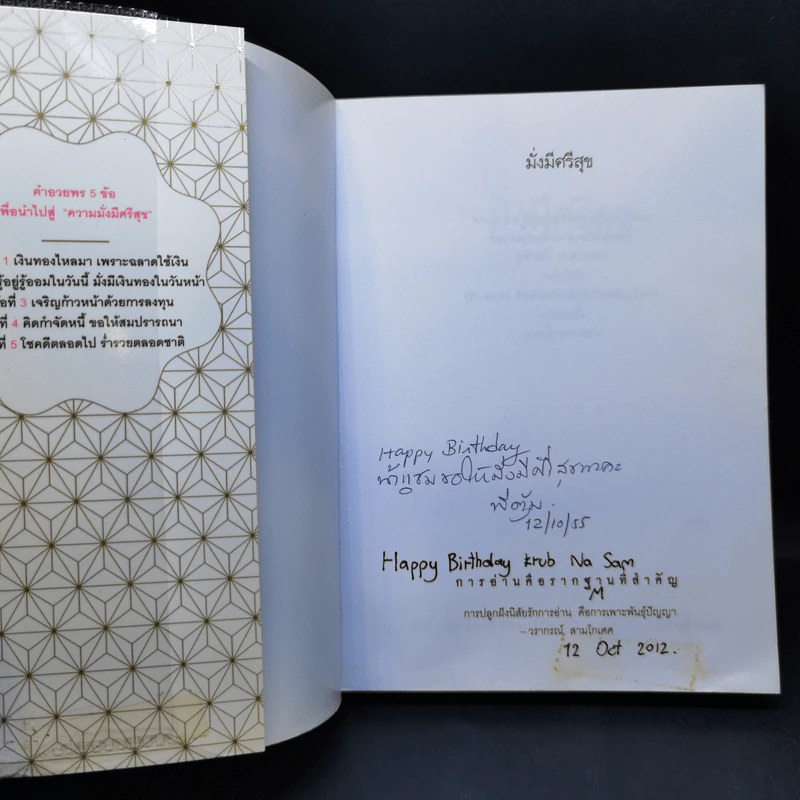 คำอวยพร 5 ข้อ
พื่อนำไปสู่ "ความมั่งมีศรีสุข"
1 เงินทองไหลมา เพราะฉลาดใช้เงิน
รู้อยู่รู้ออมในวันนี้ มั่งมีเงินทองในวันหน้า
อที่ 3 เจริญก้าวหน้าด้วยการลงทุน
ที่ 4 คิดกำจัดหนี้ ขอให้สมปรารถนา
ที่ 5 โชคดีตลอดไป ร่ำรวยตลอดชาติ
มั่งมีศรีสุข
Happy Birthday
น้าแซม ขอให้มั่งมีศรีสุข
พี่ตั้ม
12/10/55
Happy Birthday krub Na Sam
การอ่านคือรากฐานที่สำคัญ
M
การปลูกฝังนิสัยรักการอ่าน คือการเพาะพันธุ์ปัญญา
–วรากรณ์ สามโกเศศ
12 Oct 2012.